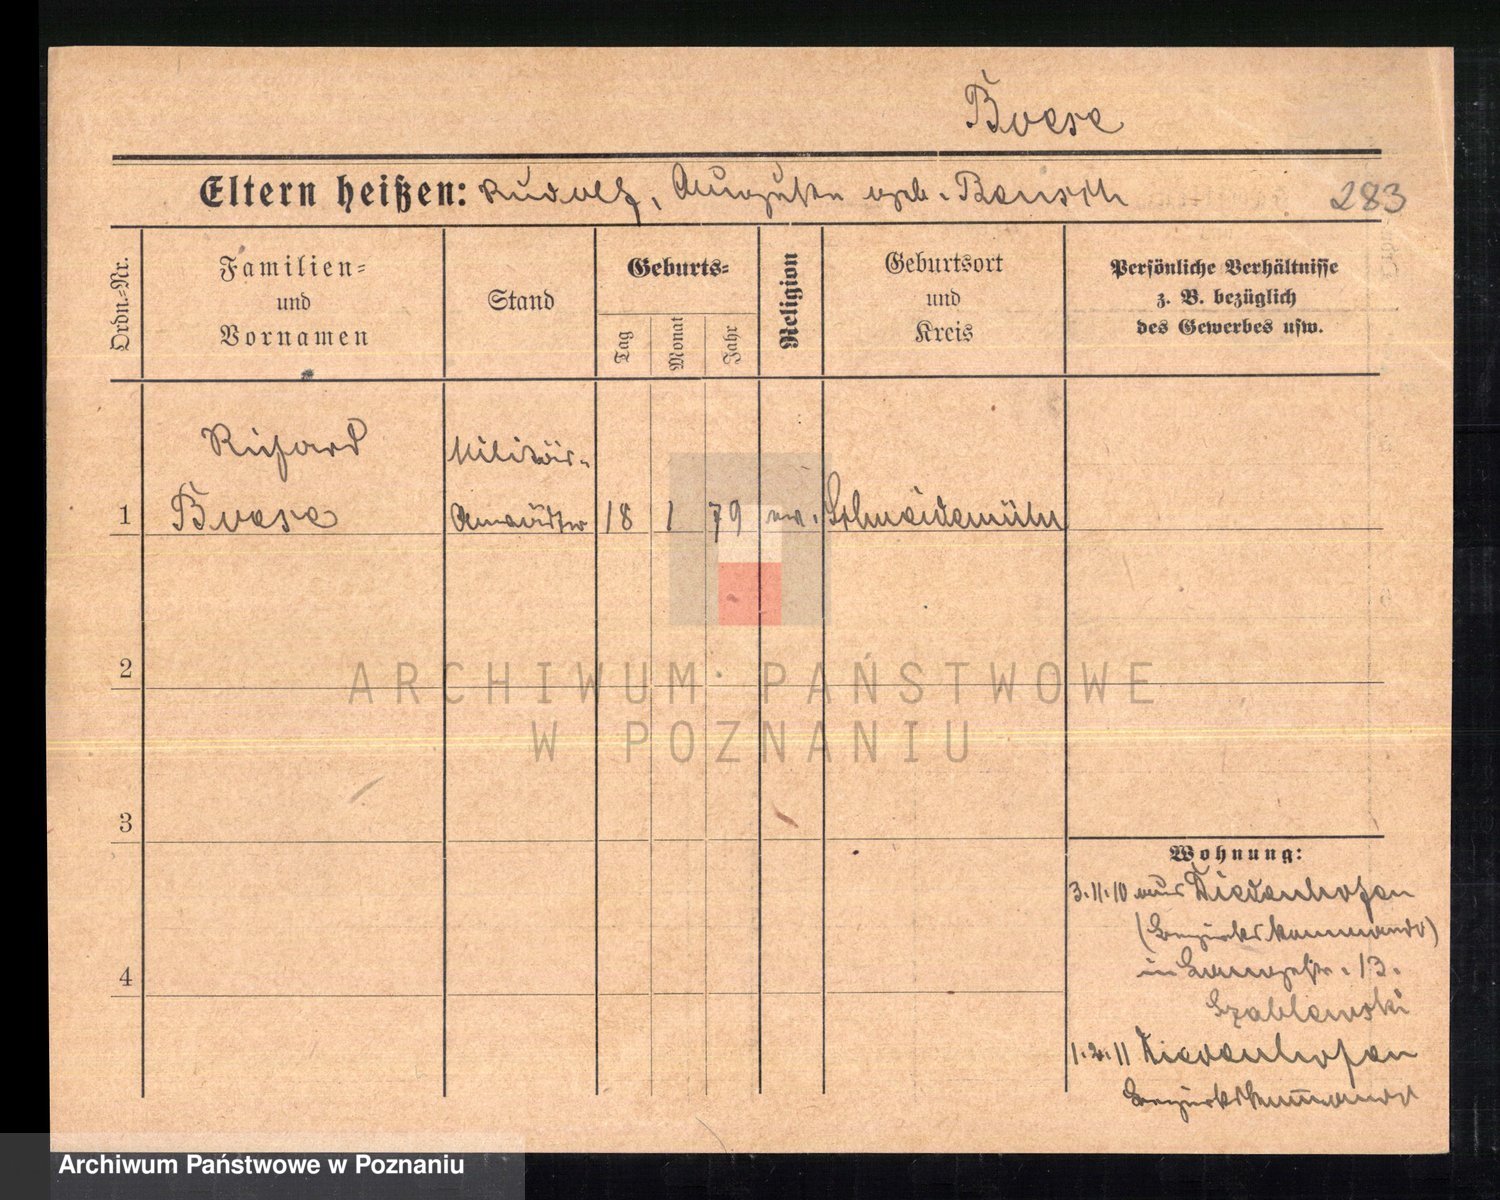 Boese
Eltern heißen: Rudolf, Auguste geb. Baensch
283
Ordn.-Nr.
Familien-
und
Vornamen
Stand
Geburts-
Tag
Monat
Jahr
Religion
Geburtsort
und
Kreis
Persönliche Verhältnisse
z. B. bezüglich
des Gewerbes usw.
Richard Militär-
1 Boese Anwärter 18 1 79 ev. Schneidemühl
2
ARCHIWUM PAŃSTWOWE
W POZNANIU
3
Wohnung:
3.11.10 aus Diedenhofen
(Bezirkskommando)
in Langestr. 13.
4
Szablewski
1.2.11 Diedenhofen
Bezirkskom̅ando
Archiwum Państwowe w Poznaniu